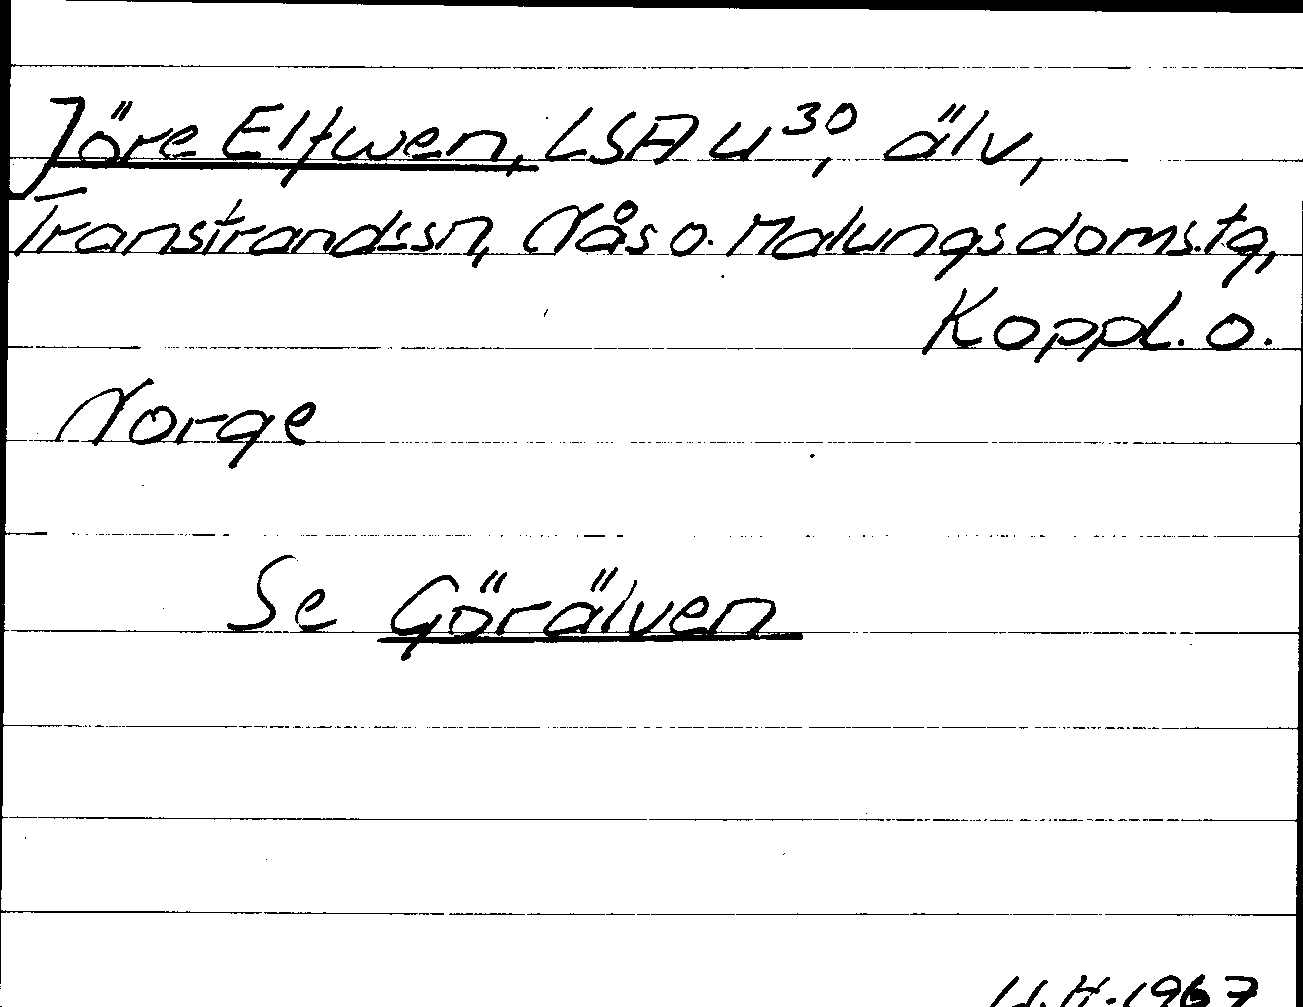 Jöre Elfwen, LSA U³⁰, älv,
Transtrandssn, Nås o. Malungsdoms.tg,
Koppl. o.
Norge
Se Görälven
H.H. 1967